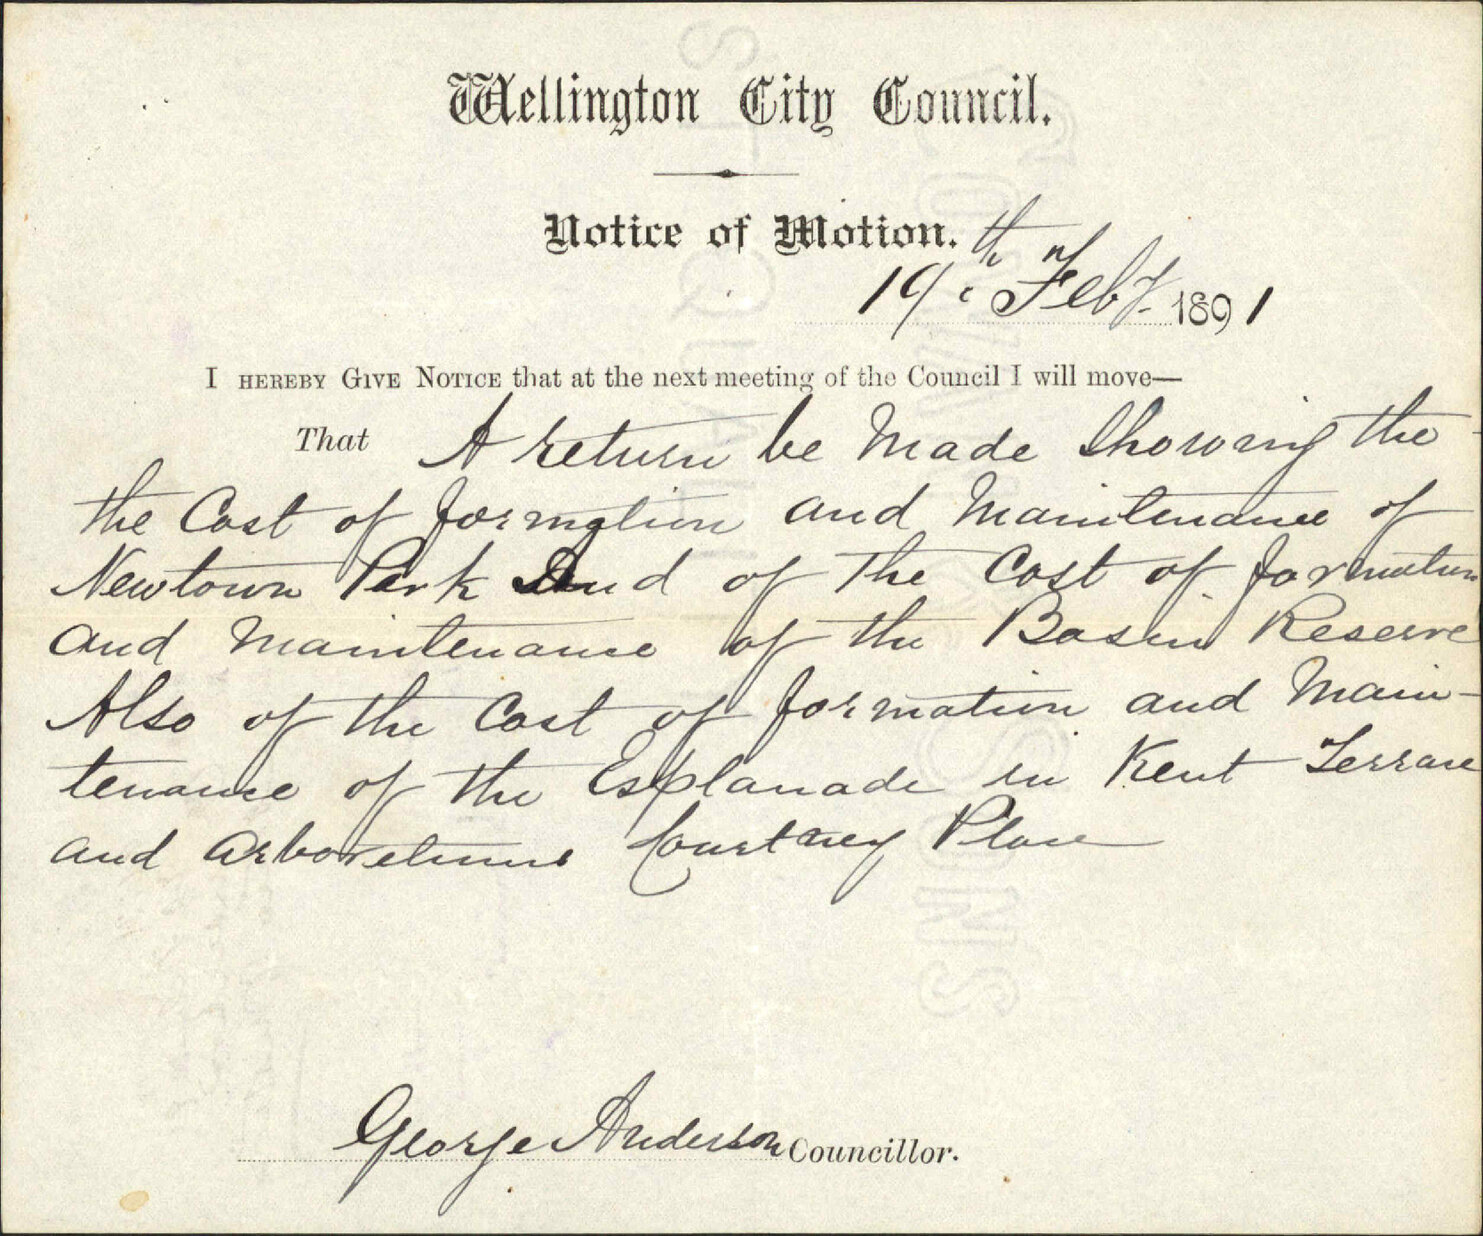 Wellington City Council.
Notice of Motion.
19th Feby. 1891
I HEREBY GIVE NOTICE that at the next meeting of the Council I will move—
That A return be Made Showing the
the Cost of formation and Maintenance of
Newtown Park And of The Cost of formation
and Maintenance of the Basin Reserve
Also of the Cost of formation and Main-
tenance of the Esplanade in Kent Terrace
and arboretums Courtney Place
George Anderson Councillor.